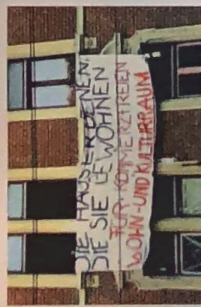 DIE HÄUSER DENEN,
DIE SIE BEWOHNEN
FÜR KOMMERZFREIEN
WOHN-UND KULTURRAUM